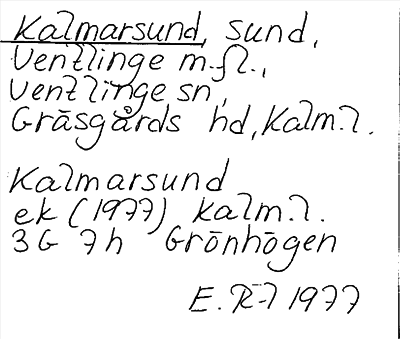 Kalmarsund, sund,
Ventlinge m.fl.,
Ventlinge sn,
Gräsgårds hd, Kalm.l.
Kalmarsund
ek (1977) Kalm.l.
3G 7h Grönhögen
E. R-l 1977